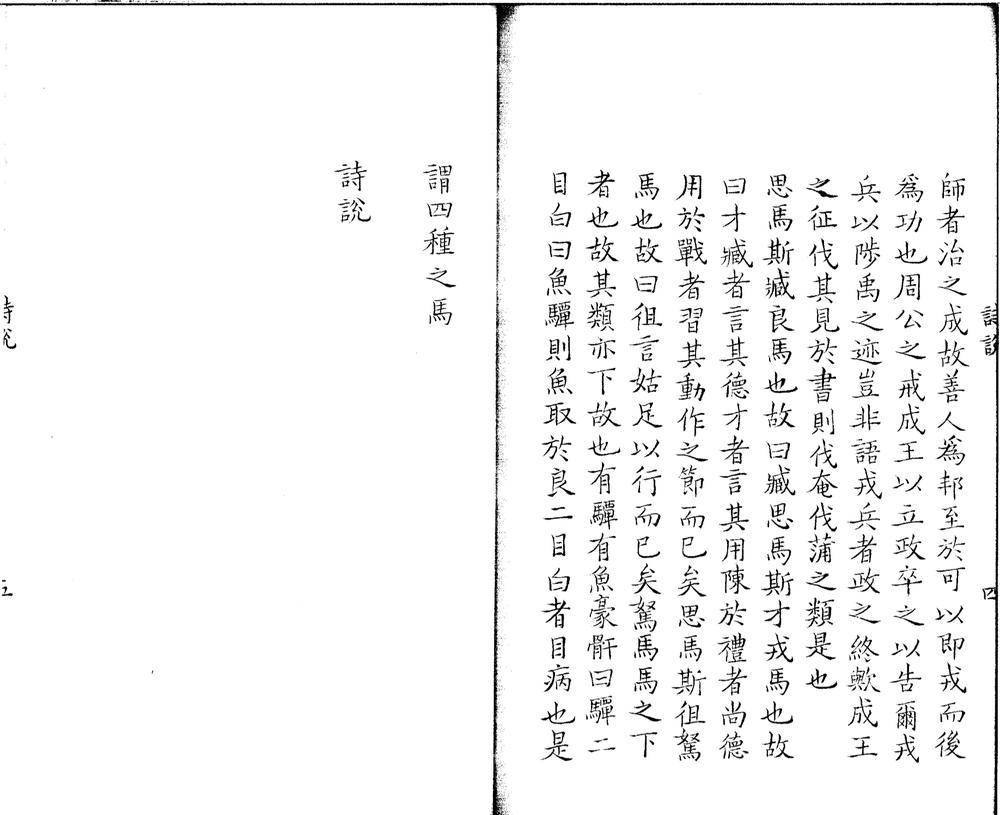 詩說
四
師者治之成故善人爲邦至於可以即戎而後
爲功也周公之戒成王以立政卒之以告爾戎
兵以陟禹之迹豈非語戎兵者政之終歟成王
之征伐其見於書則伐奄伐蒲之類是也
思馬斯臧良馬也故曰臧思馬斯才戎馬也故
曰才臧者言其德才者言其用陳於禮者尚德
用於戰者習其動作之節而已矣思馬斯徂駑
馬也故曰徂言姑足以行而已矣駑馬馬之下
者也故其類亦下故也有驔有魚豪骭曰驔二
目白曰魚驔則魚取於良二目白者目病也是
謂四種之馬
詩說
詩說
五